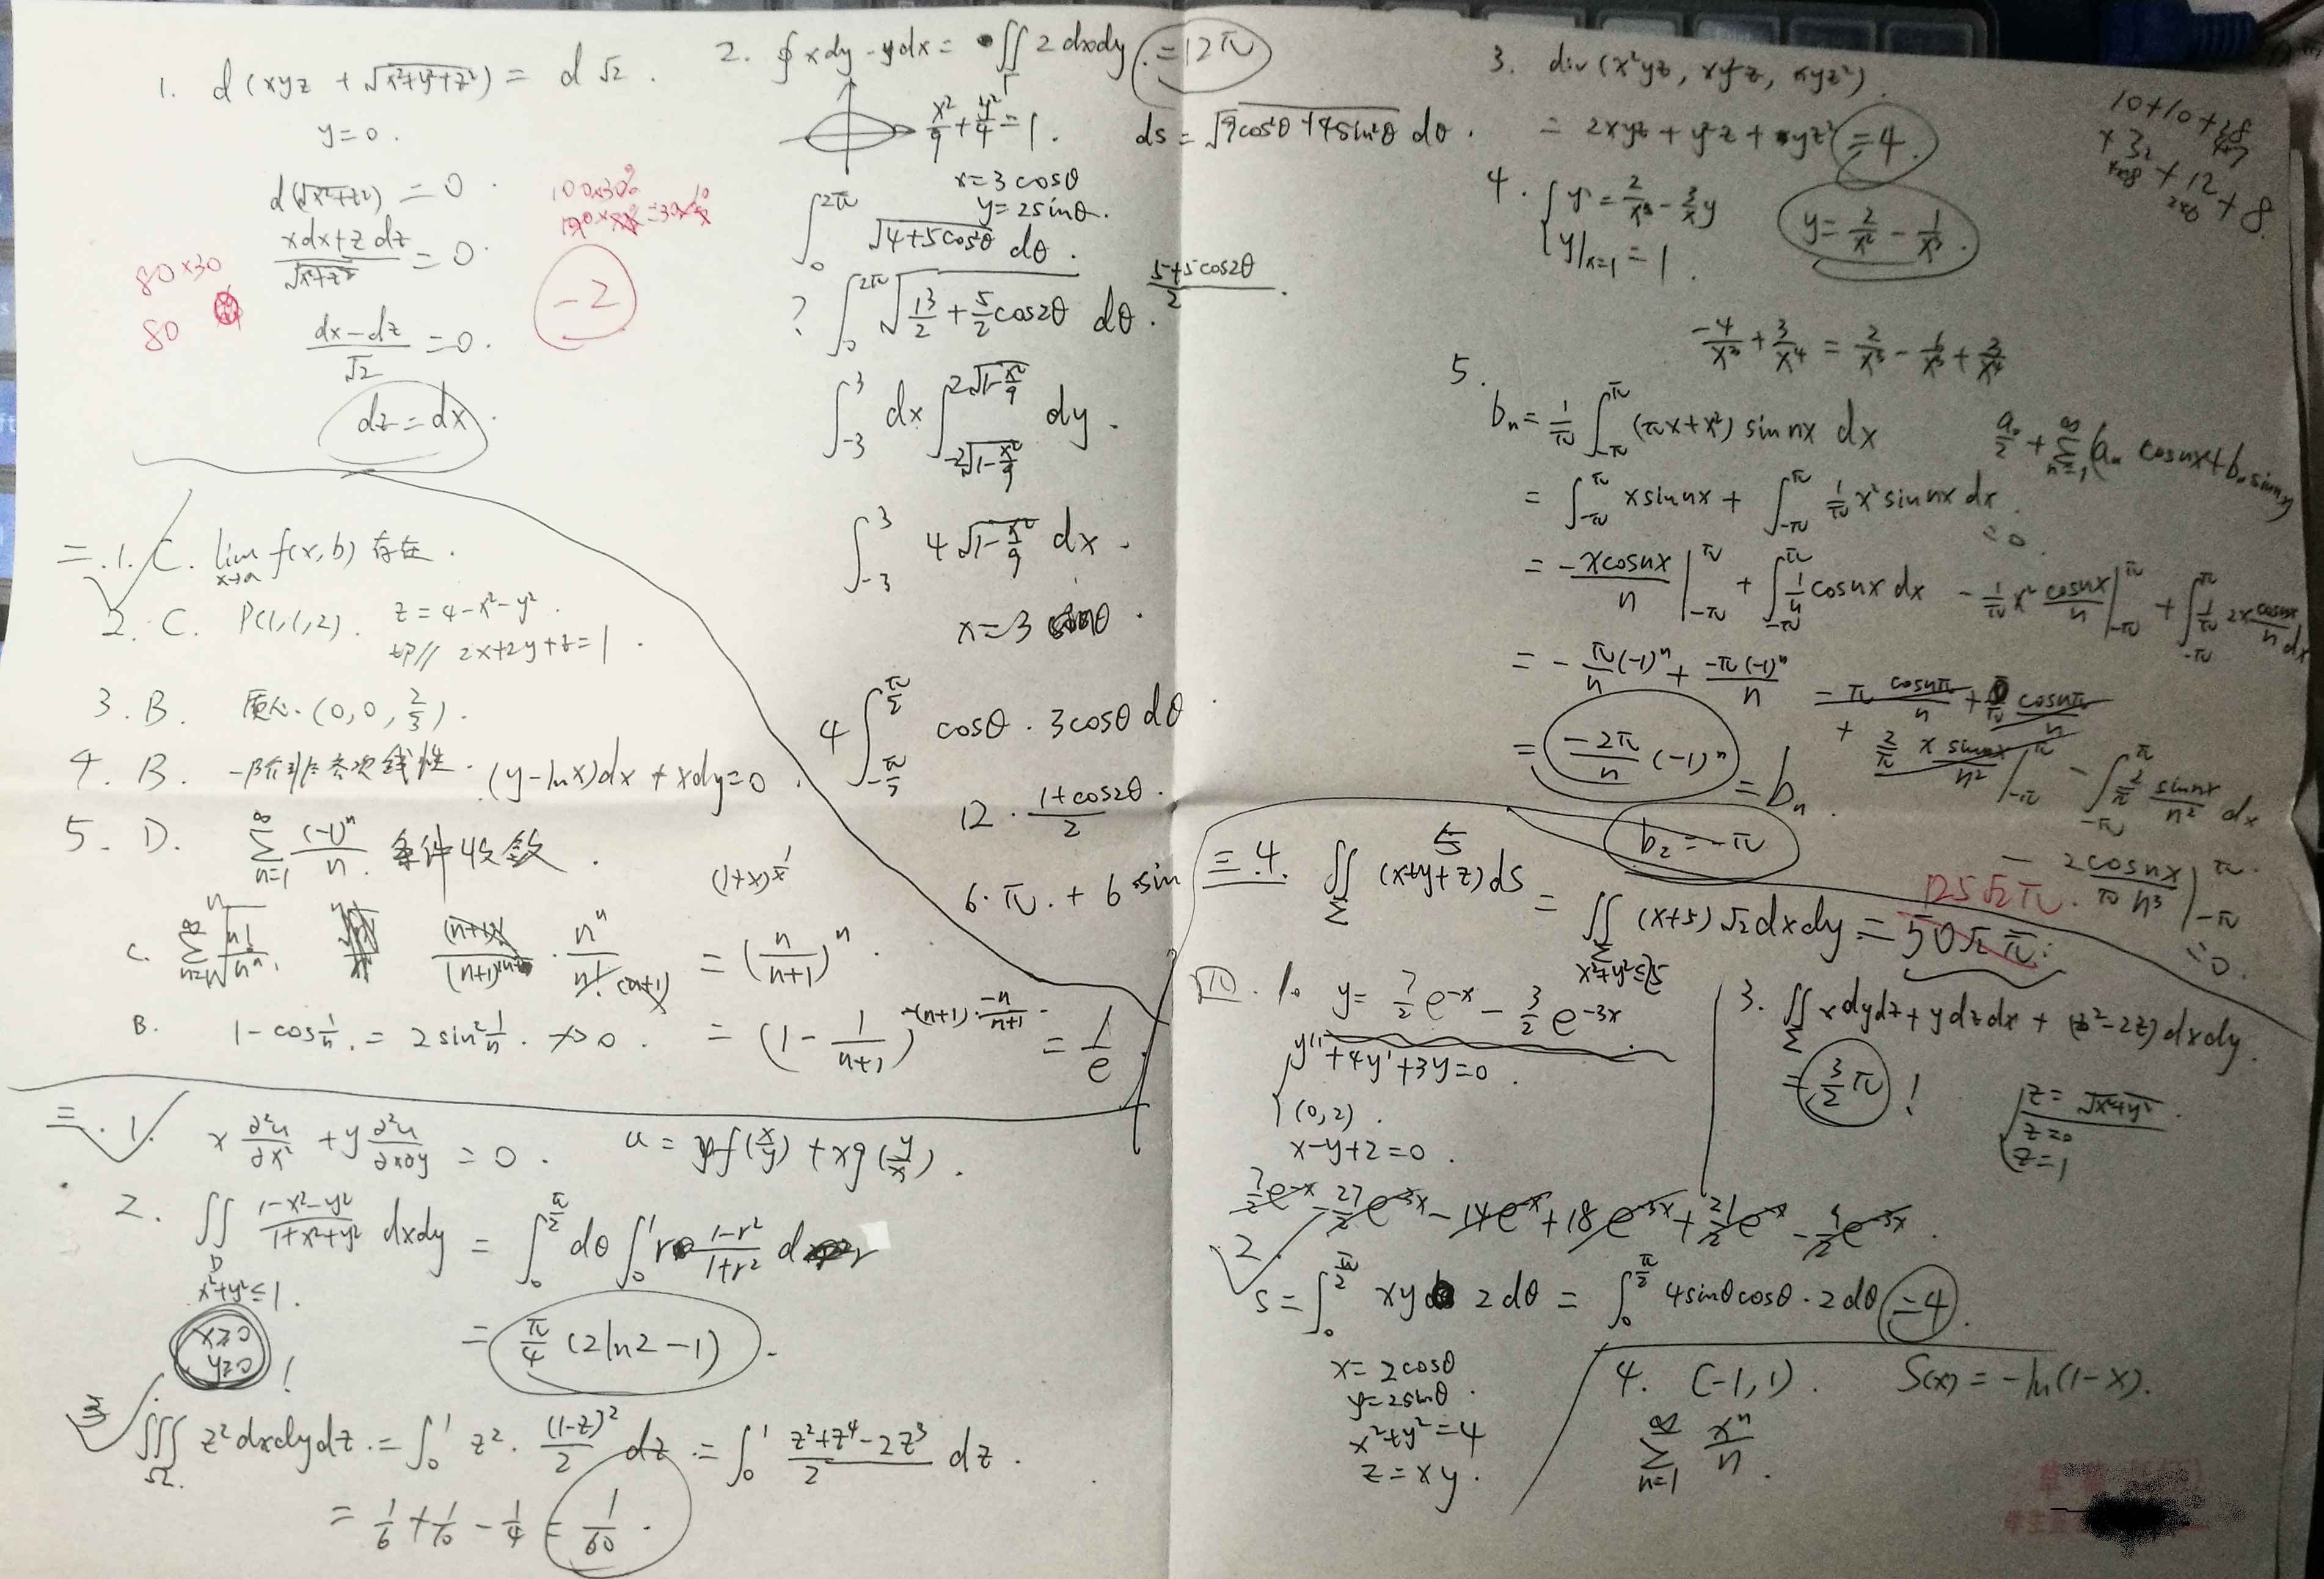 1. d(xyz + √(x²+y²+z²)) = d√2.
y=0.
d(√(x²+z²)) = 0.
(xdx+zdz)/√(x²+z²) = 0.
(dx-dz)/√2 = 0.
dz=dx.
80×30
80
100×30%
-2
2. ∮xdy-ydx = ∬ 2dxdy. =12π
x²/9 + y²/4 = 1.
ds = √(9cos²θ+4sin²θ) dθ.
x=3cosθ
y=2sinθ.
∫₀^{2π} √(4+5cos²θ) dθ.
(5+5cos2θ)/2.
? ∫₀^{2π} √(13/2 + 5/2 cos2θ) dθ.
∫₋₃^3 dx ∫_{-2√(1-x²/9)}^{2√(1-x²/9)} dy.
∫₋₃^3 4√(1-x²/9) dx.
x=3 sinθ.
4∫_{-π/2}^{π/2} cosθ·3cosθdθ.
12·(1+cos2θ)/2.
6·π.+6 sin
3. div(x²yz, xy²z, xyz²).
=4.
10+10+28
+32
+12
+8
4. { y' = 2/x³ - 3/x y
y|x=1 = 1.
y=2/x² - 1/x³.
-4/x³ + 3/x⁴ = 2/x³ - 6/x³ + 3/x⁴
5.
bₙ = 1/π ∫_{-π}^{π} (πx+x²) sin nx dx
a₀/2 + Σ_{n=1}^∞ (aₙ cosnx+bₙ sinnx)
= ∫_{-π}^{π} x sin nx + ∫_{-π}^{π} 1/π x² sin nx dx.
=0.
= -xcosnx/n |_{-π}^{π} + ∫_{-π}^{π} 1/n cosnx dx - 1/π x² cosnx/n |_{-π}^{π} + ∫_{-π}^{π} 1/π 2x cosnx/n dx
= -π(-1)ⁿ/n + -π(-1)ⁿ/n
= -2π/n (-1)ⁿ = bₙ.
- ∫_{-π}^{π} 2/π sinnx/n² dx
- 2cosnx/πn³ |_{-π}^{π}.
=0.
b₂=-π
二.1. C. lim_{x→a} f(x,b) 存在.
2. C. P(1,1,2). z=4-x²-y².
切P// 2x+2y+z=1.
3. B. 质心.(0,0,2/3).
4. B. 一阶非齐次线性. (y-lnx)dx + xdy=0.
5. D. Σ_{n=1}^∞ (-1)ⁿ/n. 条件收敛.
(1+x)^{1/x}
C. n!/nⁿ · nⁿ/n! = (n/(n+1))ⁿ.
B. 1-cos 1/n. = 2sin² 1/n. →0. = (1 - 1/(n+1))^{-(n+1)·-n/(n+1)} = 1/e.
三.1. x ∂²u/∂x² + y ∂²u/∂x∂y = 0. u = yf(x/y)+xg(y/x).
2. ∬_D (1-x²-y²)/(1+x²+y²) dxdy = ∫₀^{π/2} dθ ∫₀^1 r (1-r²)/(1+r²) dr
x²+y²≤1.
x≥0
y≥0 !
= π/4 (2ln2-1).
∭_Ω z²dxdydz = ∫₀^1 z²·(1-z)²/2 dz = ∫₀^1 (z²+z⁴-2z³)/2 dz.
= 1/6 + 1/10 - 1/4 = 1/60.
三.4. ∬_Σ (x+y+z)ds = ∬_{x²+y²≤25} (x+5)√2dxdy = 50√2π.
5
125√2π.
四.1. y = 7/2 e^{-x} - 3/2 e^{-3x}.
{ y''+4y'+3y=0.
(0,2).
x-y+2=0.
7/2 e^{-x} - 27/2 e^{-3x} - 14e^{-x} + 18e^{-3x} + 21/2 e^{-x} - 9/2 e^{-3x}.
2.
s = ∫₀^{π/2} xy 2dθ = ∫₀^{π/2} 4sinθcosθ·2dθ =4.
x=2cosθ
y=2sinθ.
x²+y²=4
z=xy.
3. ∬_Σ xdydz+ydzdx+(z²-2z)dxdy.
= 3/2 π !
{ z=√(x²+y²).
z=0
z=1
4. [-1,1). S(x)=-ln(1-x).
Σ_{n=1}^∞ xⁿ/n.